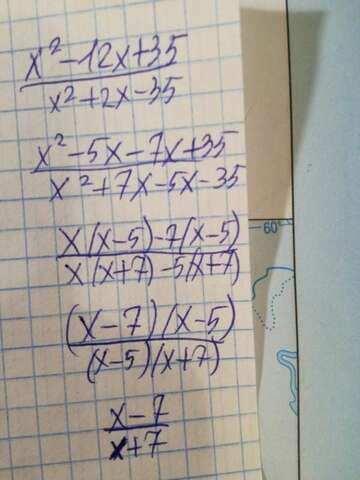 x² - 12x + 35
x² + 2x - 35
x² - 5x - 7x + 35
x² + 7x - 5x - 35
x(x-5) - 7(x-5)
x(x+7) - 5(x+7)
(x-7)(x-5)
(x-5)(x+7)
x-7
x+7
60°